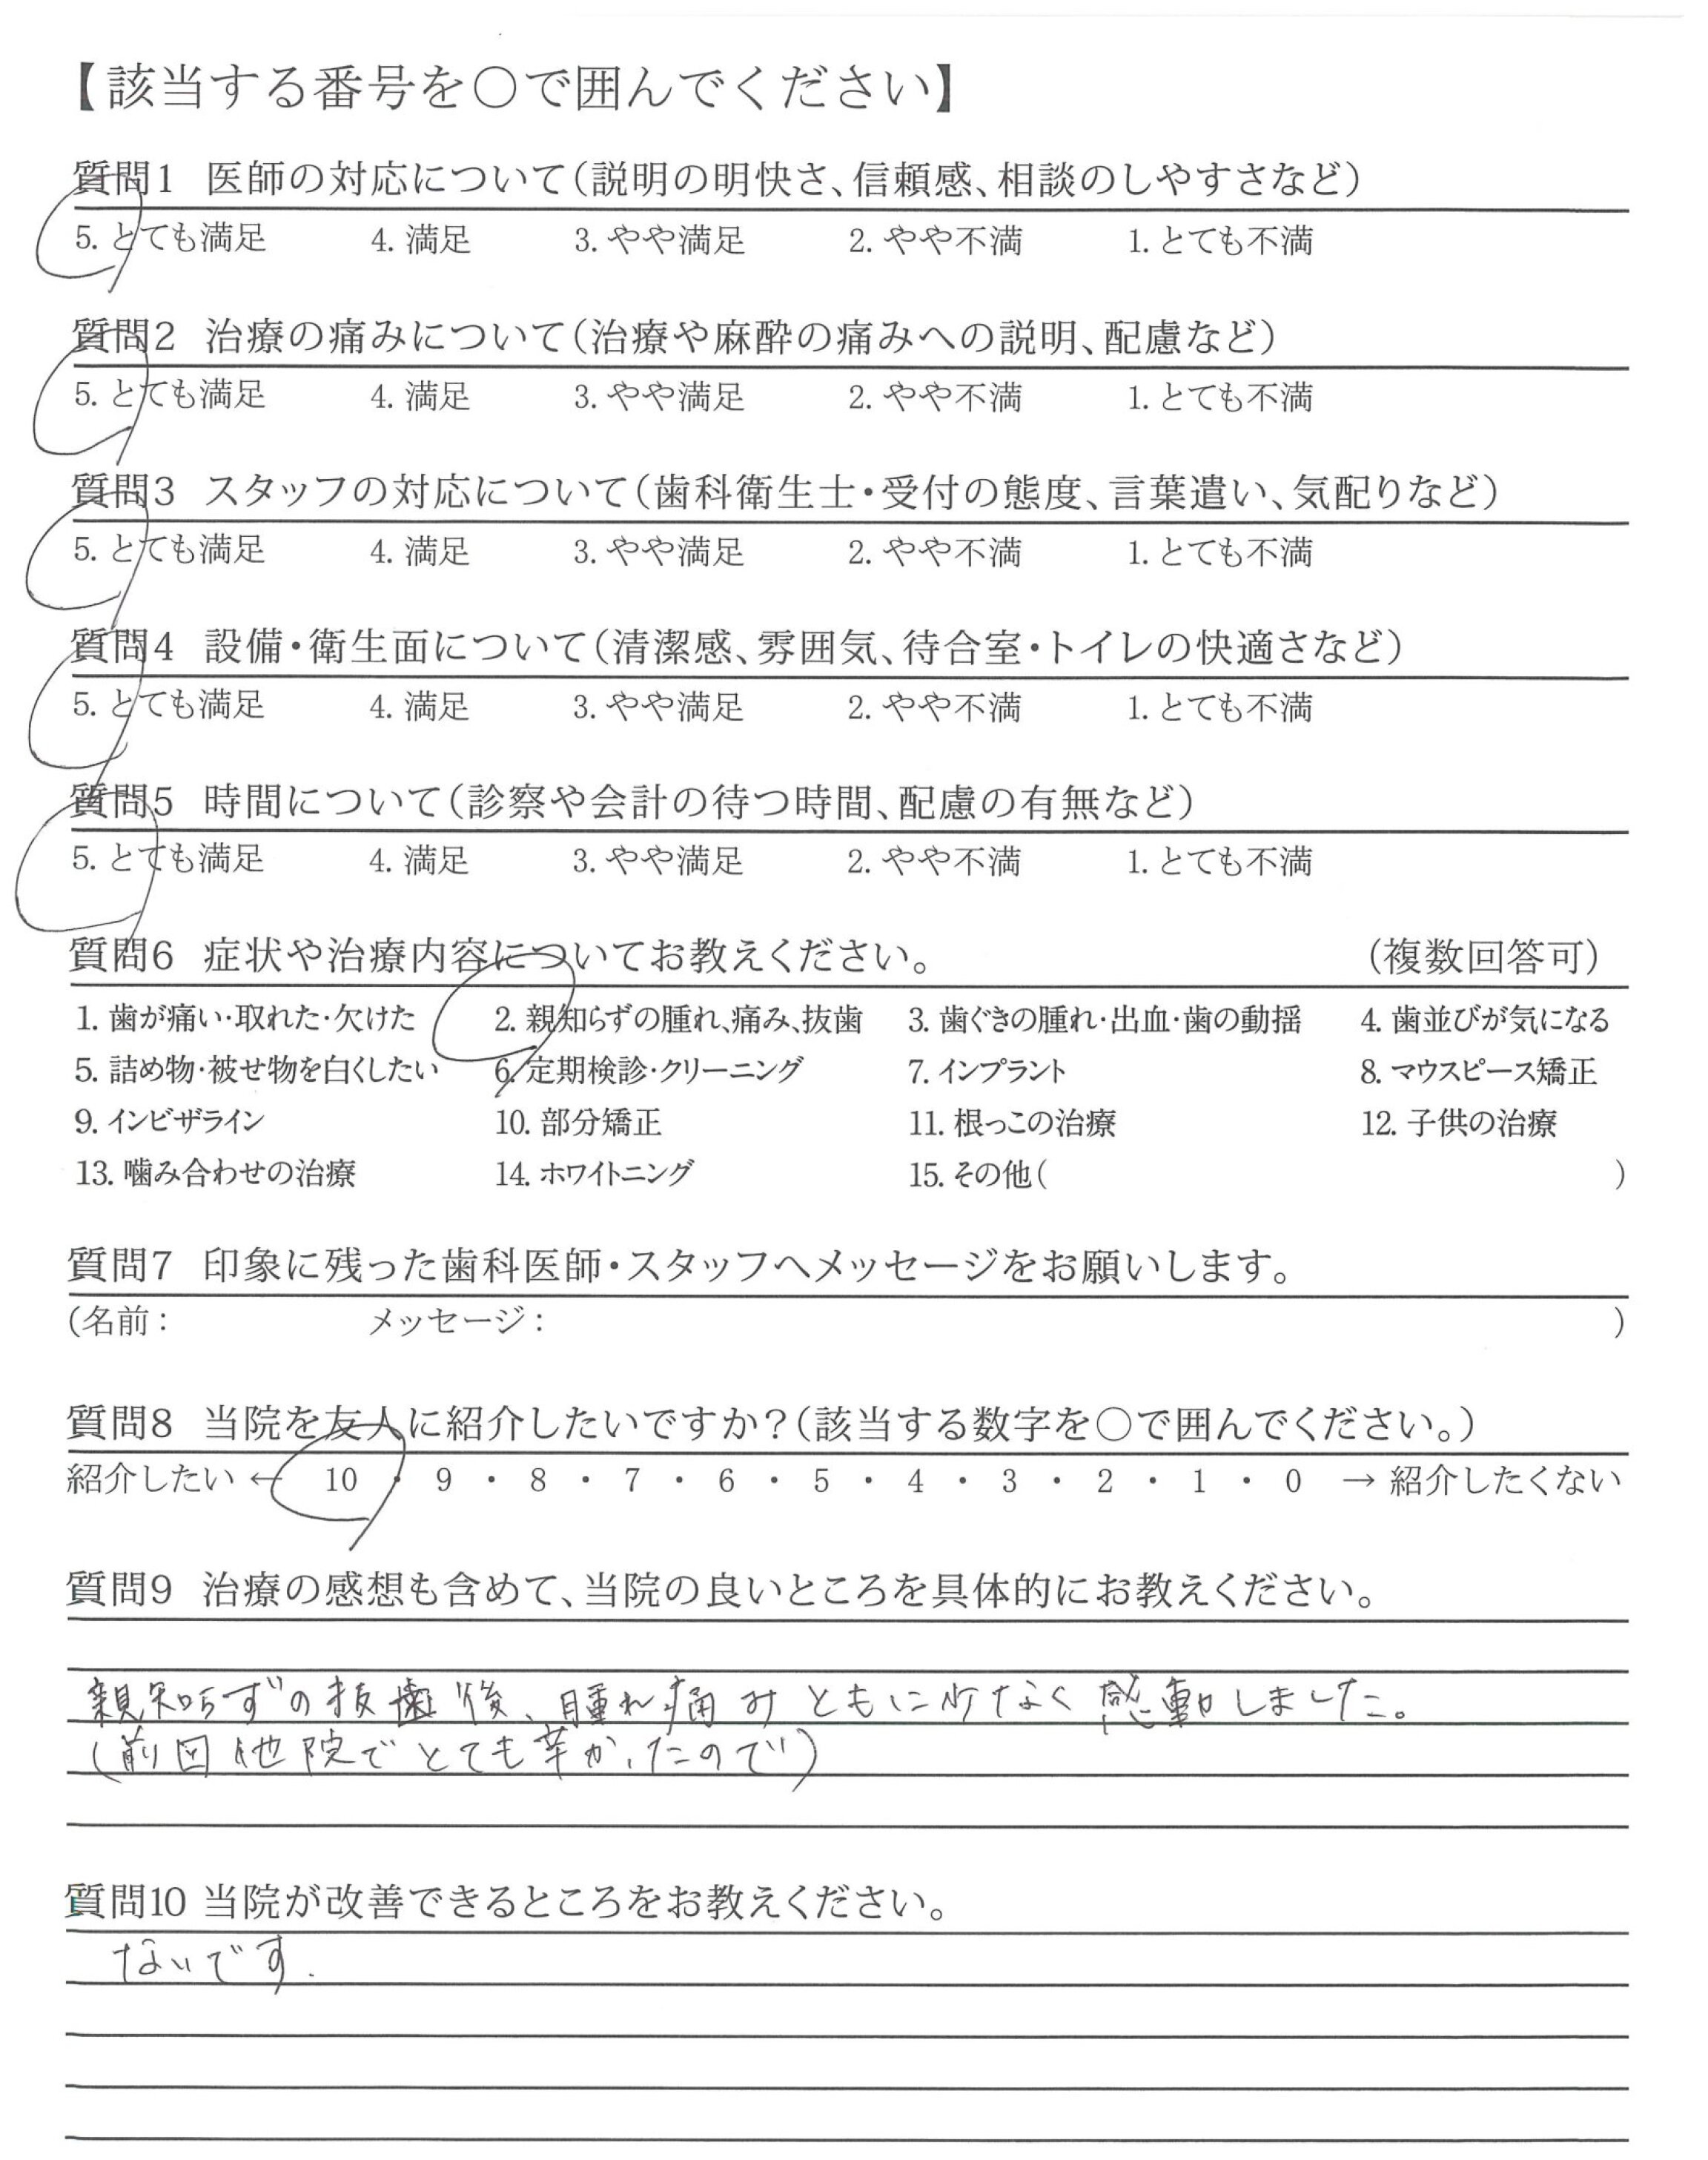 【該当する番号を〇で囲んでください】
質問1 医師の対応について（説明の明快さ、信頼感、相談のしやすさなど）
5. とても満足 4. 満足 3. やや満足 2. やや不満 1. とても不満
質問2 治療の痛みについて（治療や麻酔の痛みへの説明、配慮など）
5. とても満足 4. 満足 3. やや満足 2. やや不満 1. とても不満
質問3 スタッフの対応について（歯科衛生士・受付の態度、言葉遣い、気配りなど）
5. とても満足 4. 満足 3. やや満足 2. やや不満 1. とても不満
質問4 設備・衛生面について（清潔感、雰囲気、待合室・トイレの快適さなど）
5. とても満足 4. 満足 3. やや満足 2. やや不満 1. とても不満
質問5 時間について（診察や会計の待つ時間、配慮の有無など）
5. とても満足 4. 満足 3. やや満足 2. やや不満 1. とても不満
質問6 症状や治療内容についてお教えください。 （複数回答可）
1. 歯が痛い・取れた・欠けた 2. 親知らずの腫れ、痛み、抜歯 3. 歯ぐきの腫れ・出血・歯の動揺 4. 歯並びが気になる
5. 詰め物・被せ物を白くしたい 6. 定期検診・クリーニング 7. インプラント 8. マウスピース矯正
9. インビザライン 10. 部分矯正 11. 根っこの治療 12. 子供の治療
13. 噛み合わせの治療 14. ホワイトニング 15. その他（ ）
質問7 印象に残った歯科医師・スタッフへメッセージをお願いします。
(名前： メッセージ： )
質問8 当院を友人に紹介したいですか？（該当する数字を〇で囲んでください。）
紹介したい ← 10 ・ 9 ・ 8 ・ 7 ・ 6 ・ 5 ・ 4 ・ 3 ・ 2 ・ 1 ・ 0 → 紹介したくない
質問9 治療の感想も含めて、当院の良いところを具体的にお教えください。
親知らずの抜歯後、腫れ痛みともに少なく感動しました。
（前回他院でとても辛かったので）
質問10 当院が改善できるところをお教えください。
ないです.